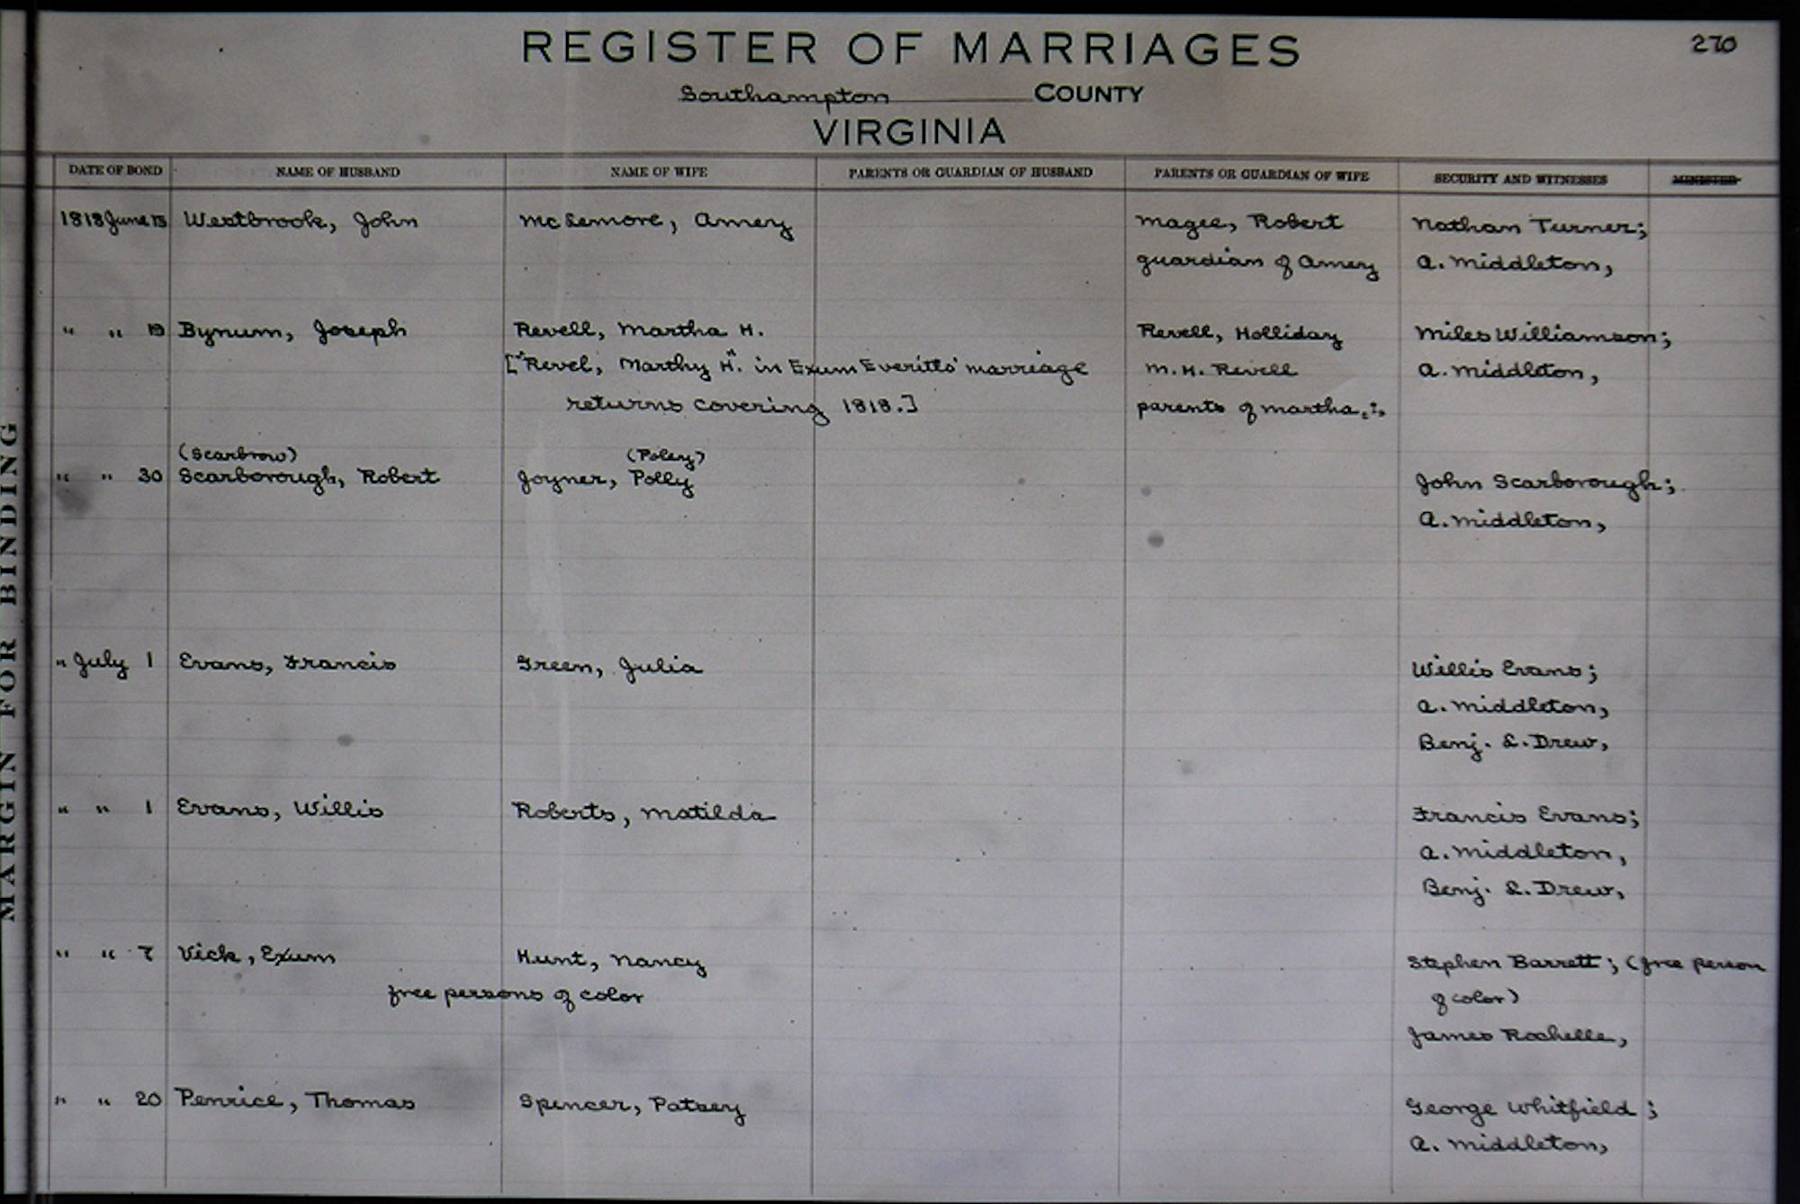 REGISTER OF MARRIAGES
270
Southampton COUNTY
VIRGINIA
DATE OF BOND NAME OF HUSBAND NAME OF WIFE PARENTS OR GUARDIAN OF HUSBAND PARENTS OR GUARDIAN OF WIFE SECURITY AND WITNESSES MINISTER
1818 June 15 Westbrook, John McLemore, Amey Magee, Robert Nathan Turner;
guardian of Amey A. Middleton,
" " 19 Bynum, Joseph Revell, Martha H. Revell, Holliday Miles Williamson;
["Revel, Marthy H." in Exum Everitts' marriage M. H. Revell A. Middleton,
returns covering 1818.] parents of Martha.
(Scarbrow) (Poley)
" " 30 Scarborough, Robert Joyner, Polly John Scarborough;
A. Middleton,
" July 1 Evans, Francis Green, Julia Willis Evans;
A. Middleton,
Benj. L. Drew,
" " 1 Evans, Willis Roberts, Matilda Francis Evans;
A. Middleton,
Benj. L. Drew,
" " 7 Vick, Exum Hunt, Nancy Stephen Barrett; (free person
free persons of color of color)
James Rochelle,
" " 20 Penrice, Thomas Spencer, Patsey George Whitfield;
A. Middleton,
MARGIN FOR BINDING